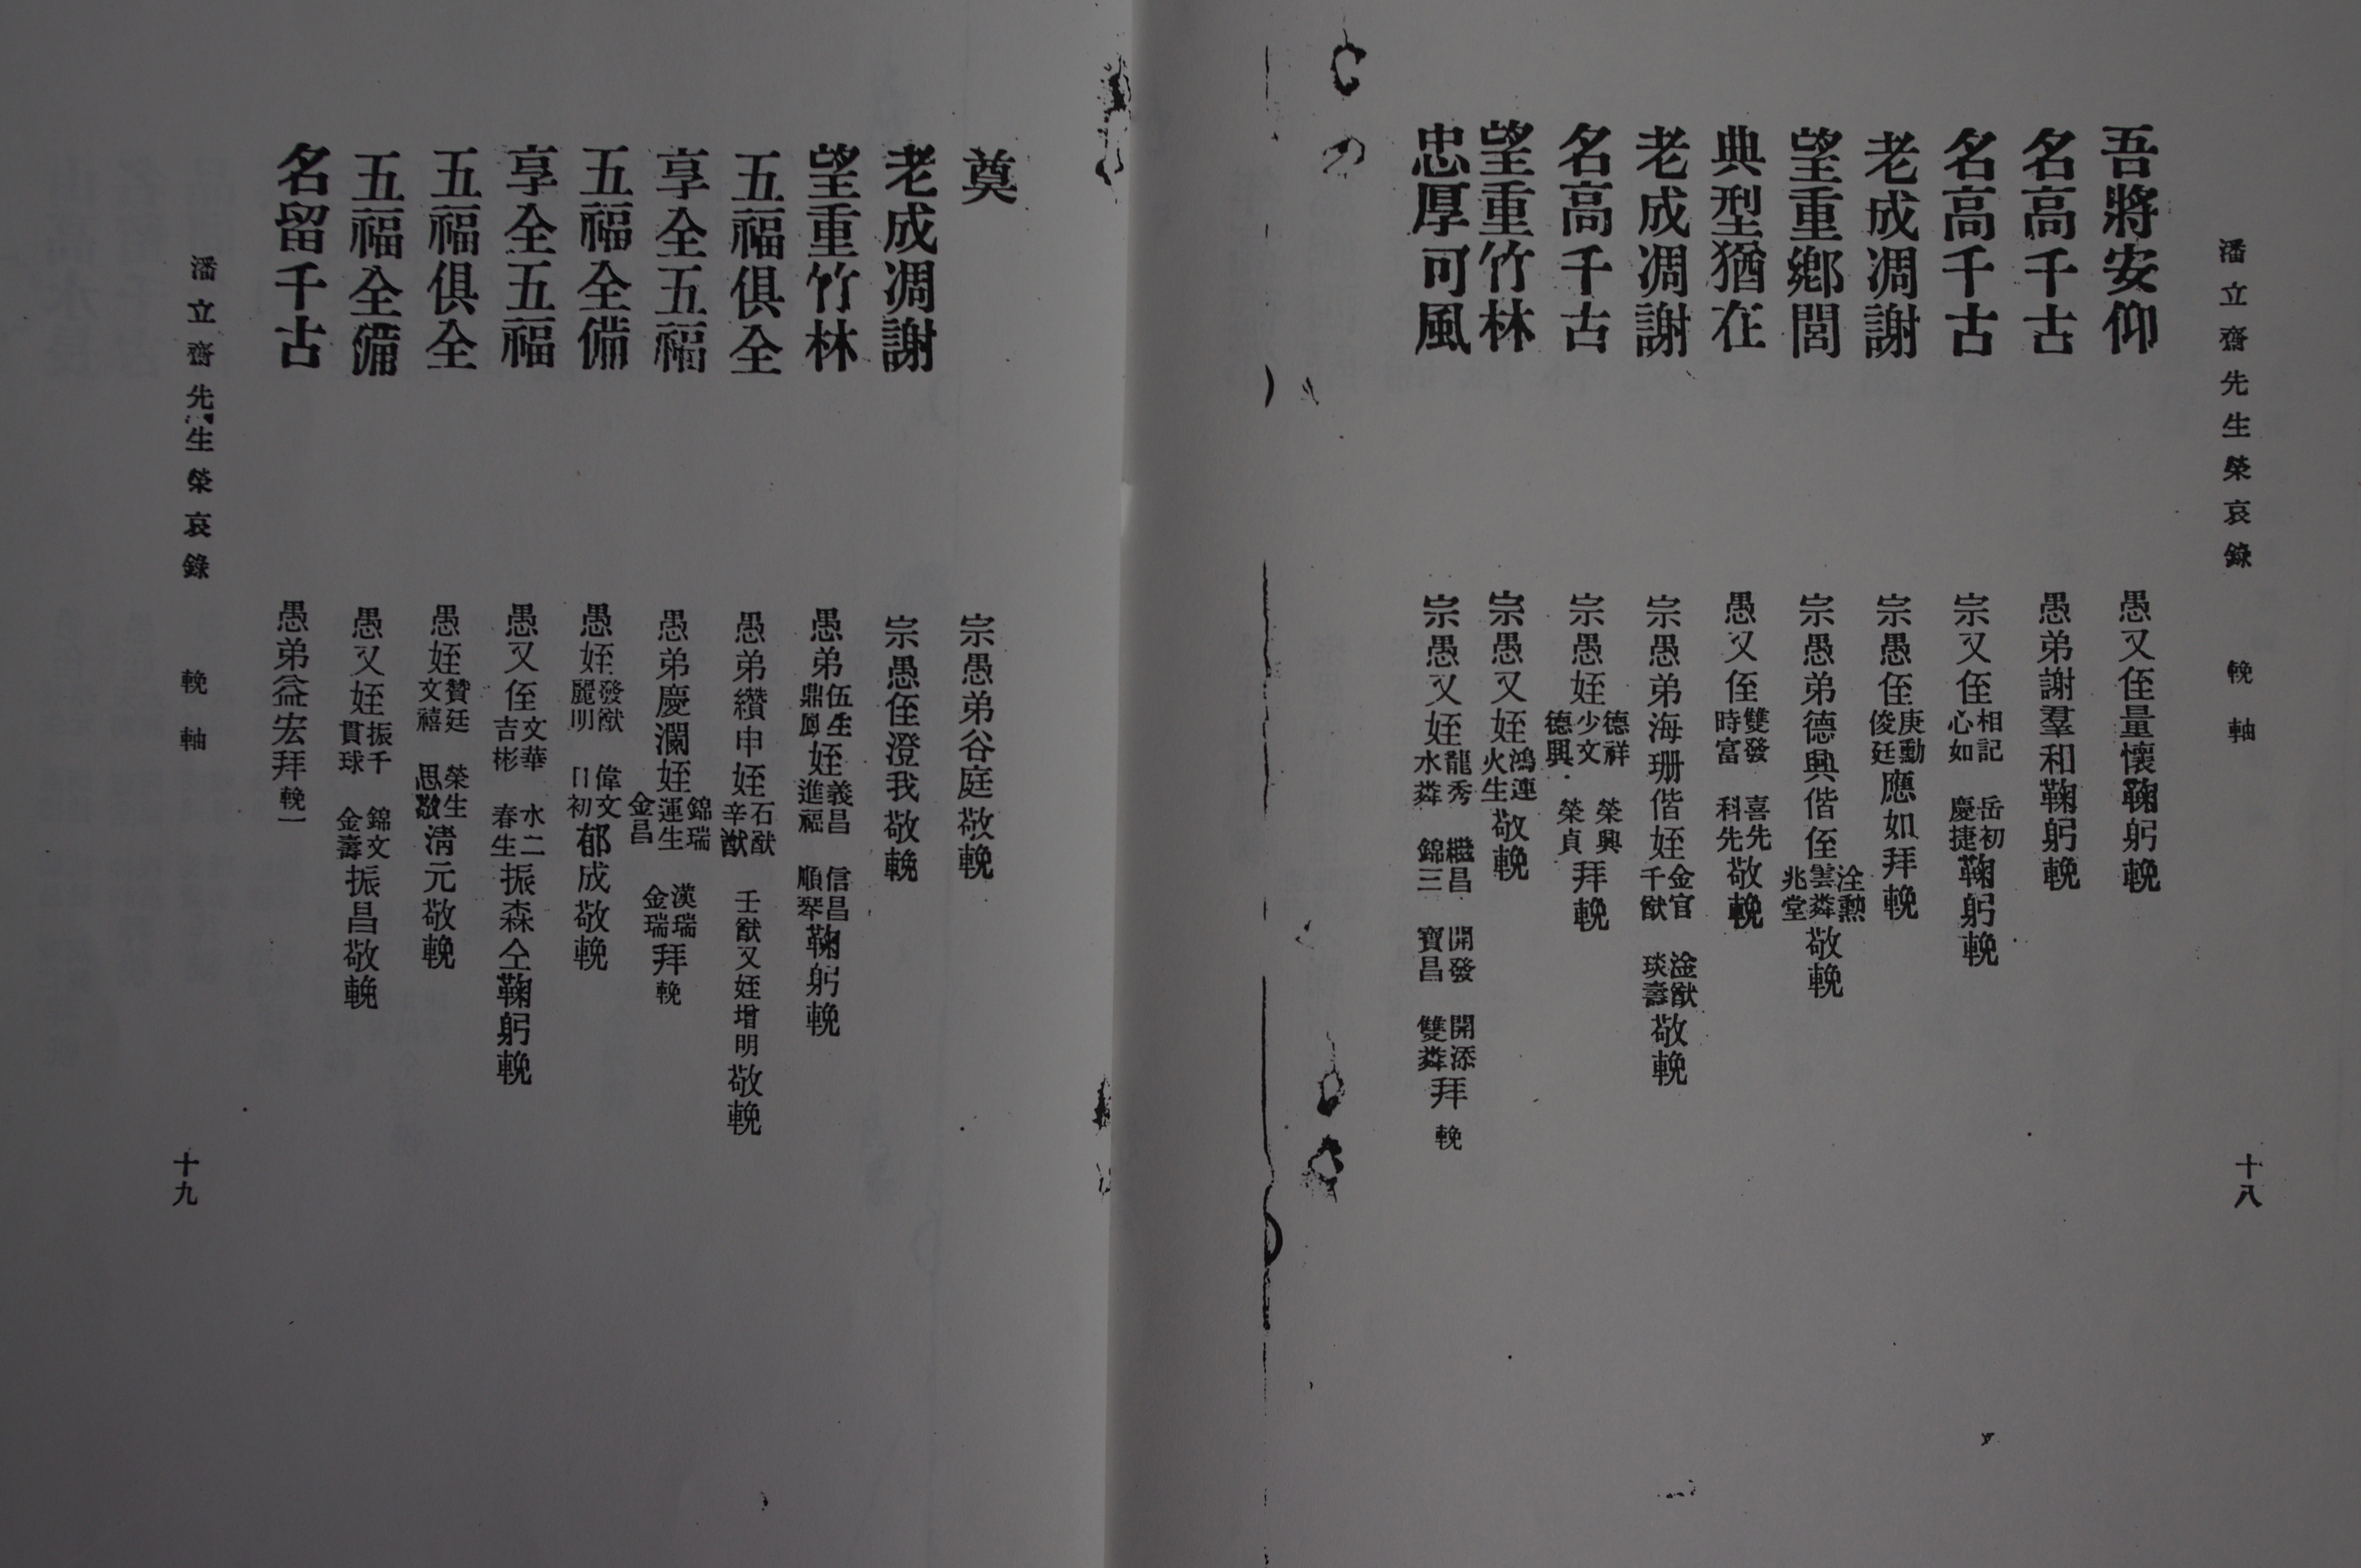 潘立齋先生榮哀錄 輓軸 十八
吾將安仰 愚又侄量懷鞠躬輓
名高千古 愚弟謝羣和鞠躬輓
名高千古 宗又侄相記心如 岳初慶捷鞠躬輓
老成凋謝 宗愚侄庚勳俊廷應如拜輓
望重鄉閭 宗愚弟德興偕侄淦勲雲粦兆堂敬輓
典型猶在 愚又侄雙發時富 喜先科先敬輓
老成凋謝 宗愚弟海珊偕姪金官千猷 淦猷琰壽敬輓
名高千古 宗愚姪德祥少文德興 榮興榮貞拜輓
望重竹林 宗愚又姪鴻連火生敬輓
忠厚可風 宗愚又姪龍秀水粦 繼昌錦三 開發寶昌 開添雙粦拜輓
奠 宗愚弟谷庭敬輓
老成凋謝 宗愚侄澄我敬輓
望重竹林 愚弟伍生鼎鳳姪義昌進福 信昌順琴鞠躬輓
五福俱全 愚弟纘申姪石猷辛猷 壬猷又姪增明敬輓
享全五福 愚弟慶瀾姪錦瑞運生金昌 漢瑞金瑞拜輓
五福全備 愚姪發猷麗明 偉文日初郁成敬輓
享全五福 愚又侄文華吉彬 水二春生振森仝鞠躬輓
五福俱全 愚姪贊廷文禧 榮生思敬清元敬輓
五福全備 愚又姪振千貫球 錦文金壽振昌敬輓
名留千古 愚弟益宏拜輓
潘立齋先生榮哀錄 輓軸 十九